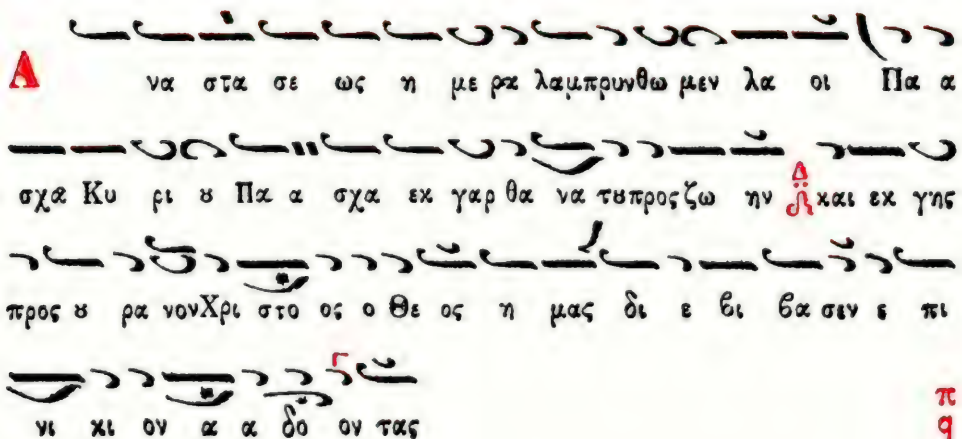 Α να στα σε ως η με ρα λαμπρυνθω μεν λα οι Πα α
σχα Κυ ρι ȣ Πα α σχα εκ γαρ θα να τȣ προς ζω ην Δ και εκ γης
προς ȣ ρα νον Χρι στο ος ο Θε ος η μας δι ε βι βα σεν ε πι
νι κι ον α α δο ον τας π q